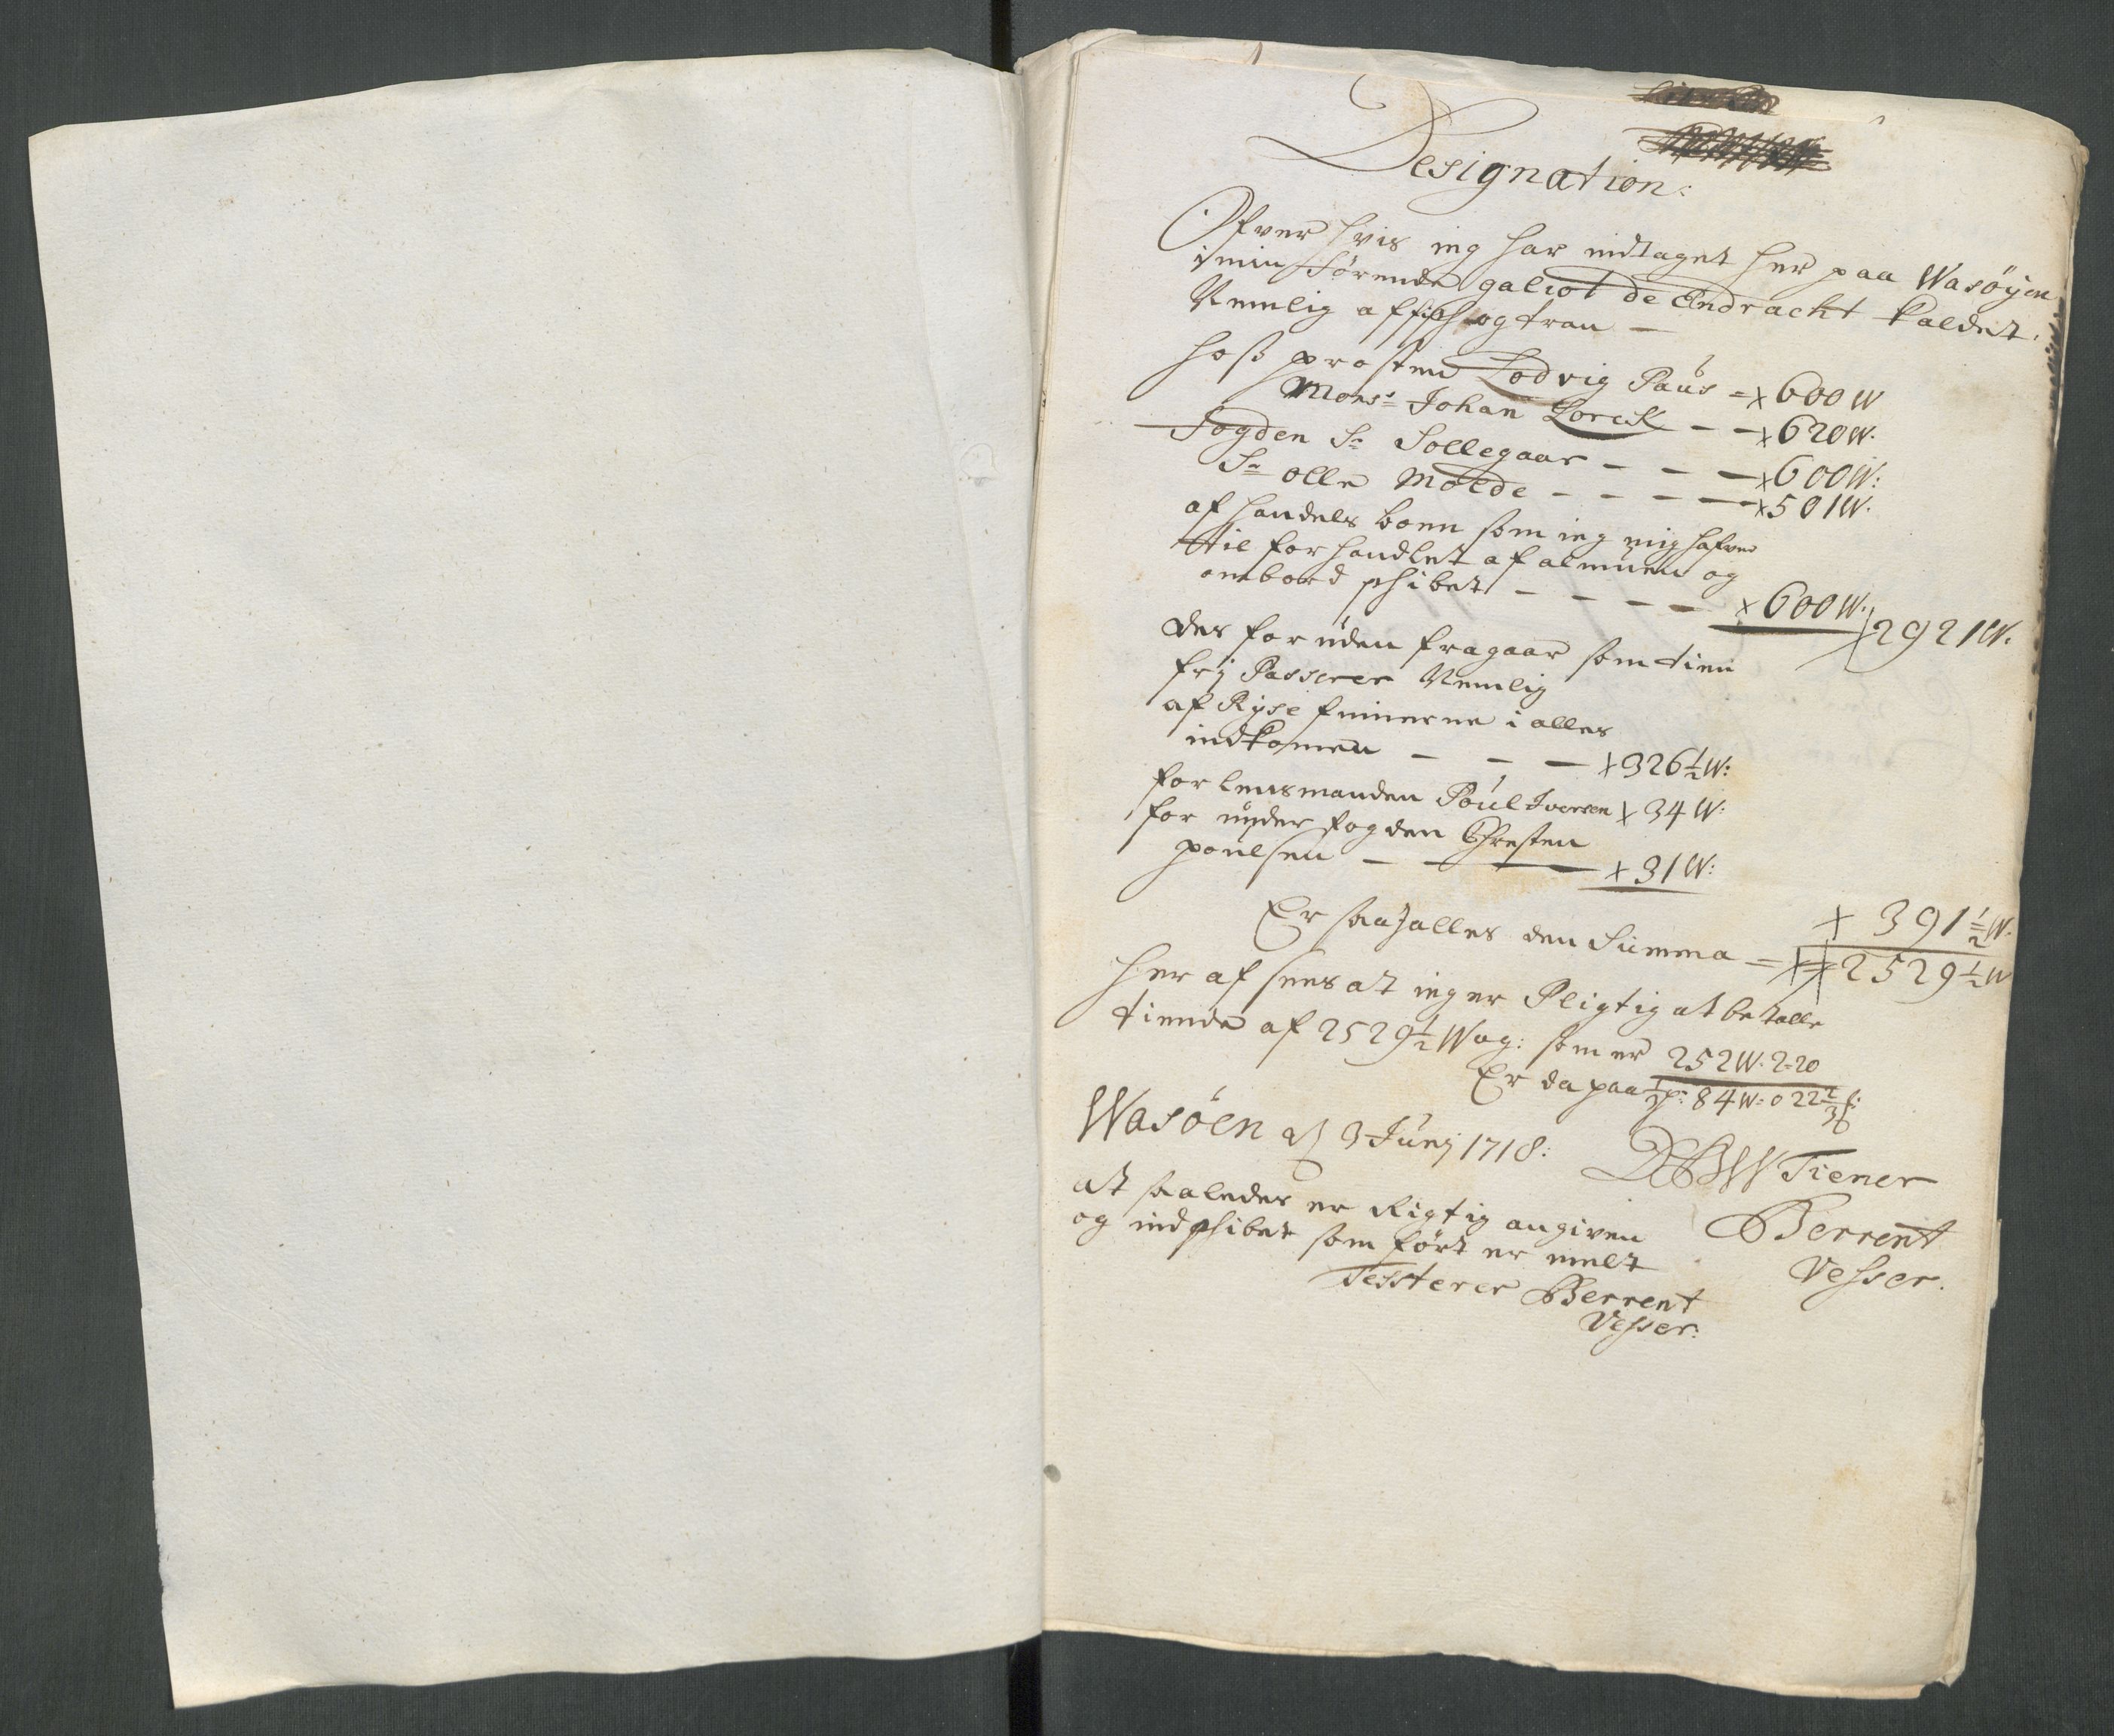 Designation:
Ofver hvis ieg har indtaget her paa Wasöyen
i min förende galiot de Endracht kaldet.
Nemlig af fisch og tran —
hoß prosten Lodvig Paus = x 600 W
Monsr: Johan Lorck — — x 620 W.
Fogden Sr Sollegaar — — — x 600 W:
Sr olle Molde — — — — x 501 W.
af handels boen som ieg mig hafver
til forhandlet af almuen og
ombord schibet — — — — x 600 W. 2921 W.
des foruden fragaar som tien
frj Passerer Nemlig
af Ryse finnerne i alles
indkomen — — — x 326½ W:
for lensmanden Poul Iversen x 34 W:
for under fogden Chresten
poulsen — — — x 31 W:
x 391½ W.
Er saa J alles den Summa = 2529½ W
her af sees at ieg er Pligtig at betalle
tiende af 2529½ Wog: som er 252 W. 2-20
Er da paa ⅓ p: 84 W: 0 22⅔
Wasöen d 3 Junj 1718:
Tiener
Berrent
Vesser.
at saaledes er Rigtig angiven
og indschibet som fört er melt
Testterer Berrent
Vesser: